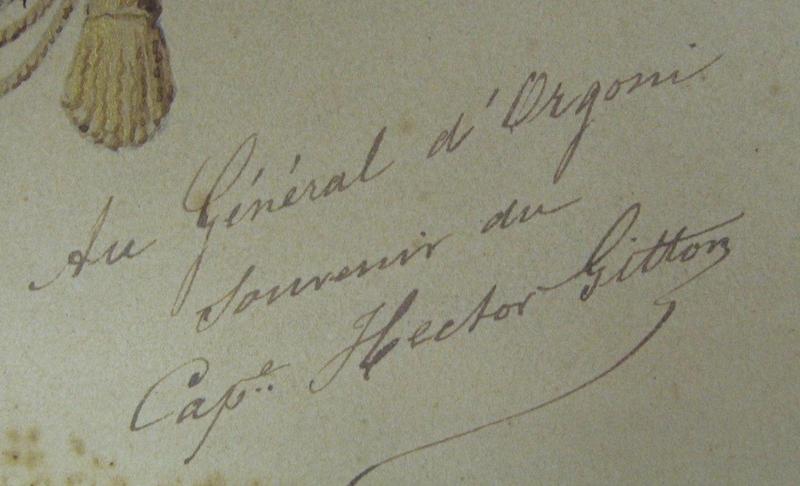 Au Général d'Orgoni
souvenir du
Cap.e Hector Gitton